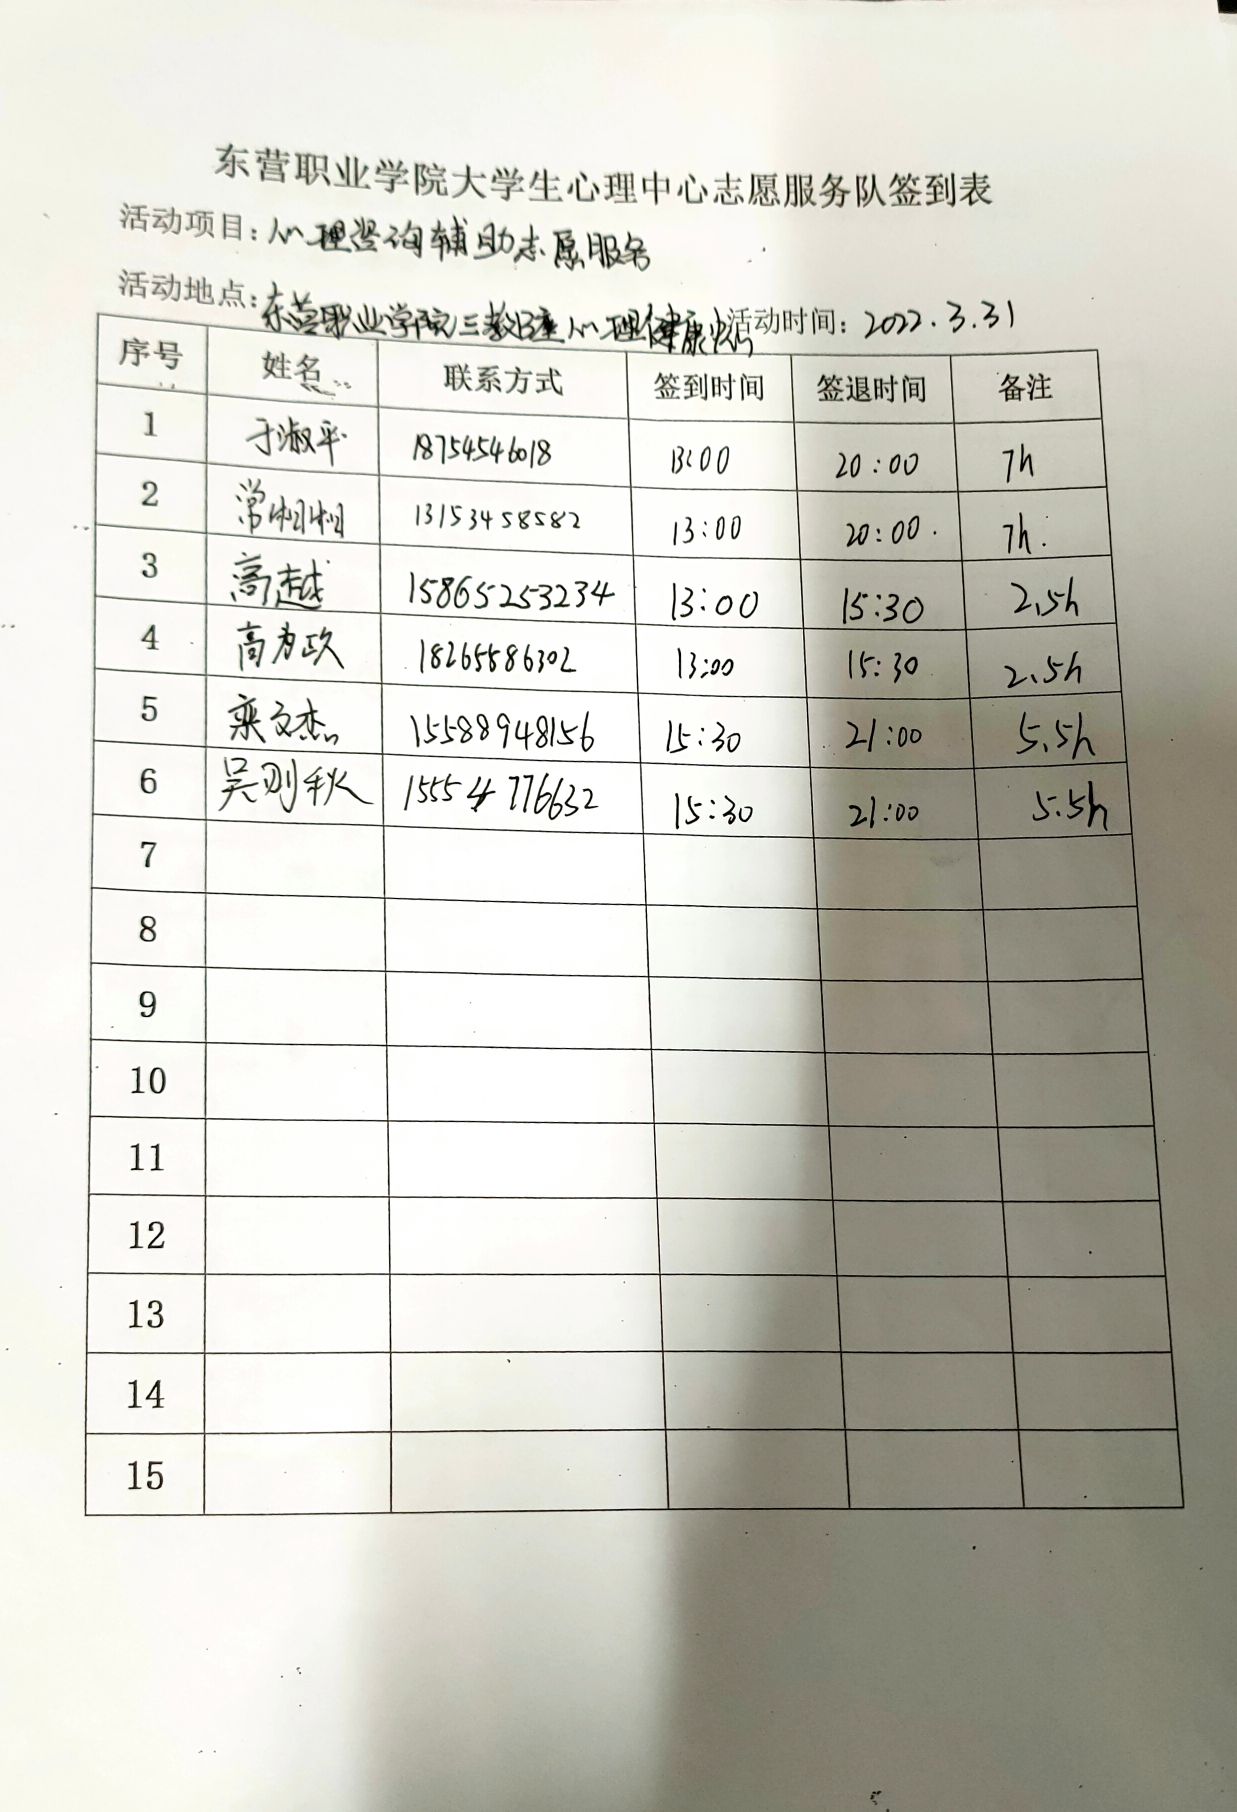 东营职业学院大学生心理中心志愿服务队签到表
活动项目：心理咨询辅助志愿服务
活动地点：东营职业学院三教B座心理健康中心 活动时间：2022.3.31
序号 姓名 联系方式 签到时间 签退时间 备注
1 于淑平 18754546018 13:00 20:00 7h
2 常相相 13153458582 13:00 20:00. 7h.
3 高越 15865253234 13:00 15:30 2.5h
4 高为政 18265586302 13:00 15:30 2.5h
5 栾文杰 15588948156 15:30 21:00 5.5h
6 吴则秋 15554776632 15:30 21:00 5.5h
7
8
9
10
11
12
13
14
15